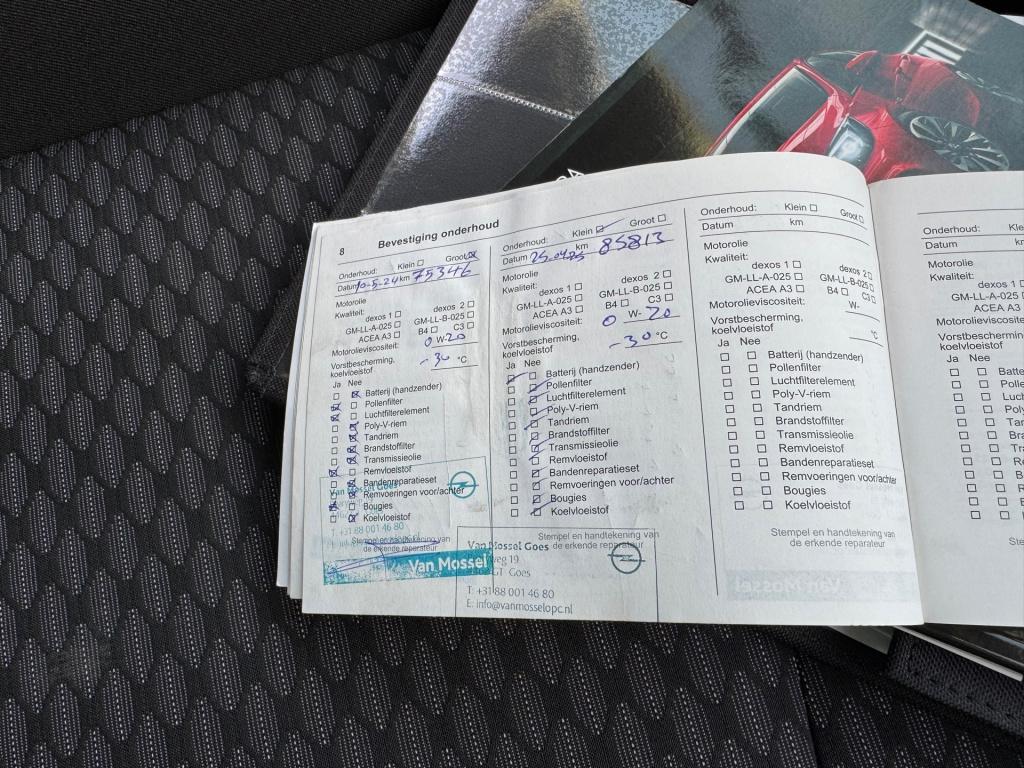 8 Bevestiging onderhoud
Onderhoud: Klein ☐ Groot ☒
Datum 10-5-24 km 75346
Motorolie
Kwaliteit:
dexos 1 ☐ dexos 2 ☐
GM-LL-A-025 ☐ GM-LL-B-025 ☐
ACEA A3 ☐ B4 ☐ C3 ☐
Motorolieviscositeit: 0 W-20
Vorstbescherming,
koelvloeistof -30 °C
Ja Nee
Batterij (handzender)
Pollenfilter
Luchtfilterelement
Poly-V-riem
Tandriem
Brandstoffilter
Transmissieolie
Remvloeistof
Bandenreparatieset
Remvoeringen voor/achter
Bougies
Koelvloeistof
Van Mossel Goes
T: +31 88 001 46 80
Stempel en handtekening van
de erkende reparateur
Van Mossel
Onderhoud: Klein ☑ Groot ☐
Datum 25-04-25 km 85813
Motorolie
Kwaliteit:
dexos 1 ☐ dexos 2 ☐
GM-LL-A-025 ☐ GM-LL-B-025 ☐
ACEA A3 ☐ B4 ☐ C3 ☐
Motorolieviscositeit: 0 W-20
Vorstbescherming,
koelvloeistof -30 °C
Ja Nee
Batterij (handzender)
Pollenfilter
Luchtfilterelement
Poly-V-riem
Tandriem
Brandstoffilter
Transmissieolie
Remvloeistof
Bandenreparatieset
Remvoeringen voor/achter
Bougies
Koelvloeistof
Stempel en handtekening van
de erkende reparateur
Van Mossel Goes
weg 19
GT Goes
T: +31 88 001 46 80
E: info@vanmosselopc.nl
Onderhoud: Klein ☐ Groot ☐
Datum km
Motorolie
Kwaliteit:
dexos 1 ☐ dexos 2 ☐
GM-LL-A-025 ☐ GM-LL-B-025 ☐
ACEA A3 ☐ B4 ☐ C3 ☐
Motorolieviscositeit: W-
Vorstbescherming,
koelvloeistof °C
Ja Nee
Batterij (handzender)
Pollenfilter
Luchtfilterelement
Poly-V-riem
Tandriem
Brandstoffilter
Transmissieolie
Remvloeistof
Bandenreparatieset
Remvoeringen voor/achter
Bougies
Koelvloeistof
Stempel en handtekening van
de erkende reparateur
Onderhoud: Klein ☐
Datum km
Motorolie
Kwaliteit:
dexos 1 ☐
GM-LL-A-025 ☐
ACEA A3 ☐
Motorolieviscositeit:
Vorstbescherming,
koelvloeistof
Ja Nee